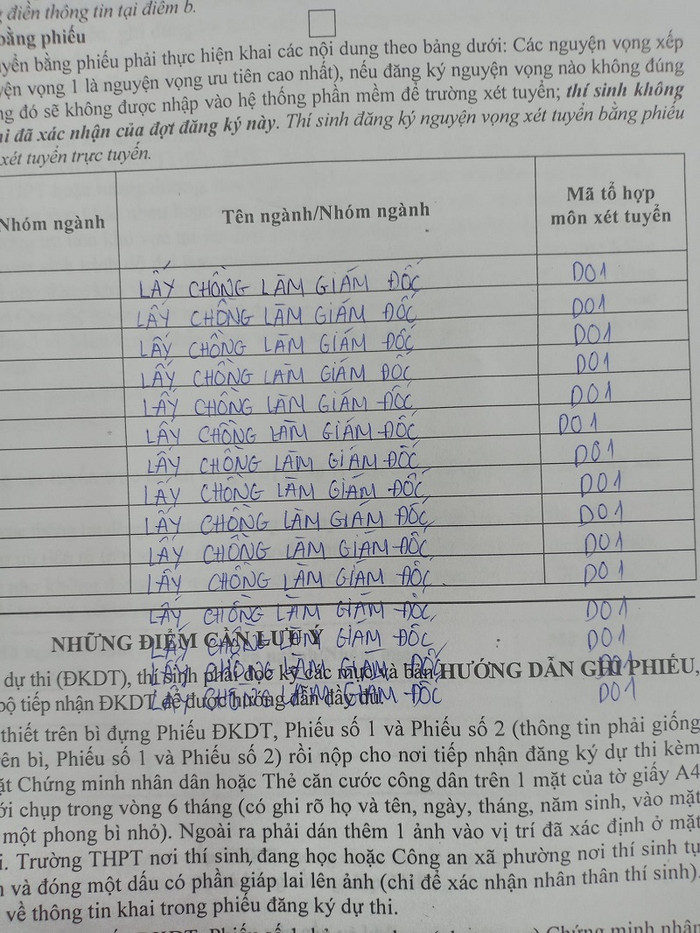 điền thông tin tại điểm b.
bằng phiếu
tuyển bằng phiếu phải thực hiện khai các nội dung theo bảng dưới: Các nguyện vọng xếp
vọng 1 là nguyện vọng ưu tiên cao nhất), nếu đăng ký nguyện vọng nào không đúng
đó sẽ không được nhập vào hệ thống phần mềm để trường xét tuyển; thí sinh không
đã xác nhận của đợt đăng ký này. Thí sinh đăng ký nguyện vọng xét tuyển bằng phiếu
xét tuyển trực tuyến.
Nhóm ngành Tên ngành/Nhóm ngành Mã tổ hợp
môn xét tuyển
LẤY CHỒNG LÀM GIÁM ĐỐC D01
LẤY CHỒNG LÀM GIÁM ĐỐC D01
LẤY CHỒNG LÀM GIÁM ĐỐC D01
LẤY CHỒNG LÀM GIÁM ĐỐC D01
LẤY CHỒNG LÀM GIÁM ĐỐC D01
LẤY CHỒNG LÀM GIÁM ĐỐC D01
LẤY CHỒNG LÀM GIÁM ĐỐC D01
LẤY CHỒNG LÀM GIÁM ĐỐC D01
LẤY CHỒNG LÀM GIÁM ĐỐC D01
LẤY CHỒNG LÀM GIÁM ĐỐC D01
LẤY CHỒNG LÀM GIÁM ĐỐC D01
LẤY CHỒNG LÀM GIÁM ĐỐC D01
NHỮNG ĐIỂM CẦN LƯU Ý
LẤY CHỒNG LÀM GIÁM ĐỐC D01
dự thi (ĐKDT), thí sinh phải đọc kỹ các mục và bản HƯỚNG DẪN GHI PHIẾU,
LẤY CHỒNG LÀM GIÁM ĐỐC D01
bộ tiếp nhận ĐKDT để được hướng dẫn đầy đủ.
LẤY CHỒNG LÀM GIÁM ĐỐC D01
thiết trên bì đựng Phiếu ĐKDT, Phiếu số 1 và Phiếu số 2 (thông tin phải giống
trên bì, Phiếu số 1 và Phiếu số 2) rồi nộp cho nơi tiếp nhận đăng ký dự thi kèm
mặt Chứng minh nhân dân hoặc Thẻ căn cước công dân trên 1 mặt của tờ giấy A4
mới chụp trong vòng 6 tháng (có ghi rõ họ và tên, ngày, tháng, năm sinh, vào mặt
một phong bì nhỏ). Ngoài ra phải dán thêm 1 ảnh vào vị trí đã xác định ở mặt
Trường THPT nơi thí sinh đang học hoặc Công an xã phường nơi thí sinh tự
và đóng một dấu có phần giáp lai lên ảnh (chỉ để xác nhận nhân thân thí sinh).
về thông tin khai trong phiếu đăng ký dự thi.